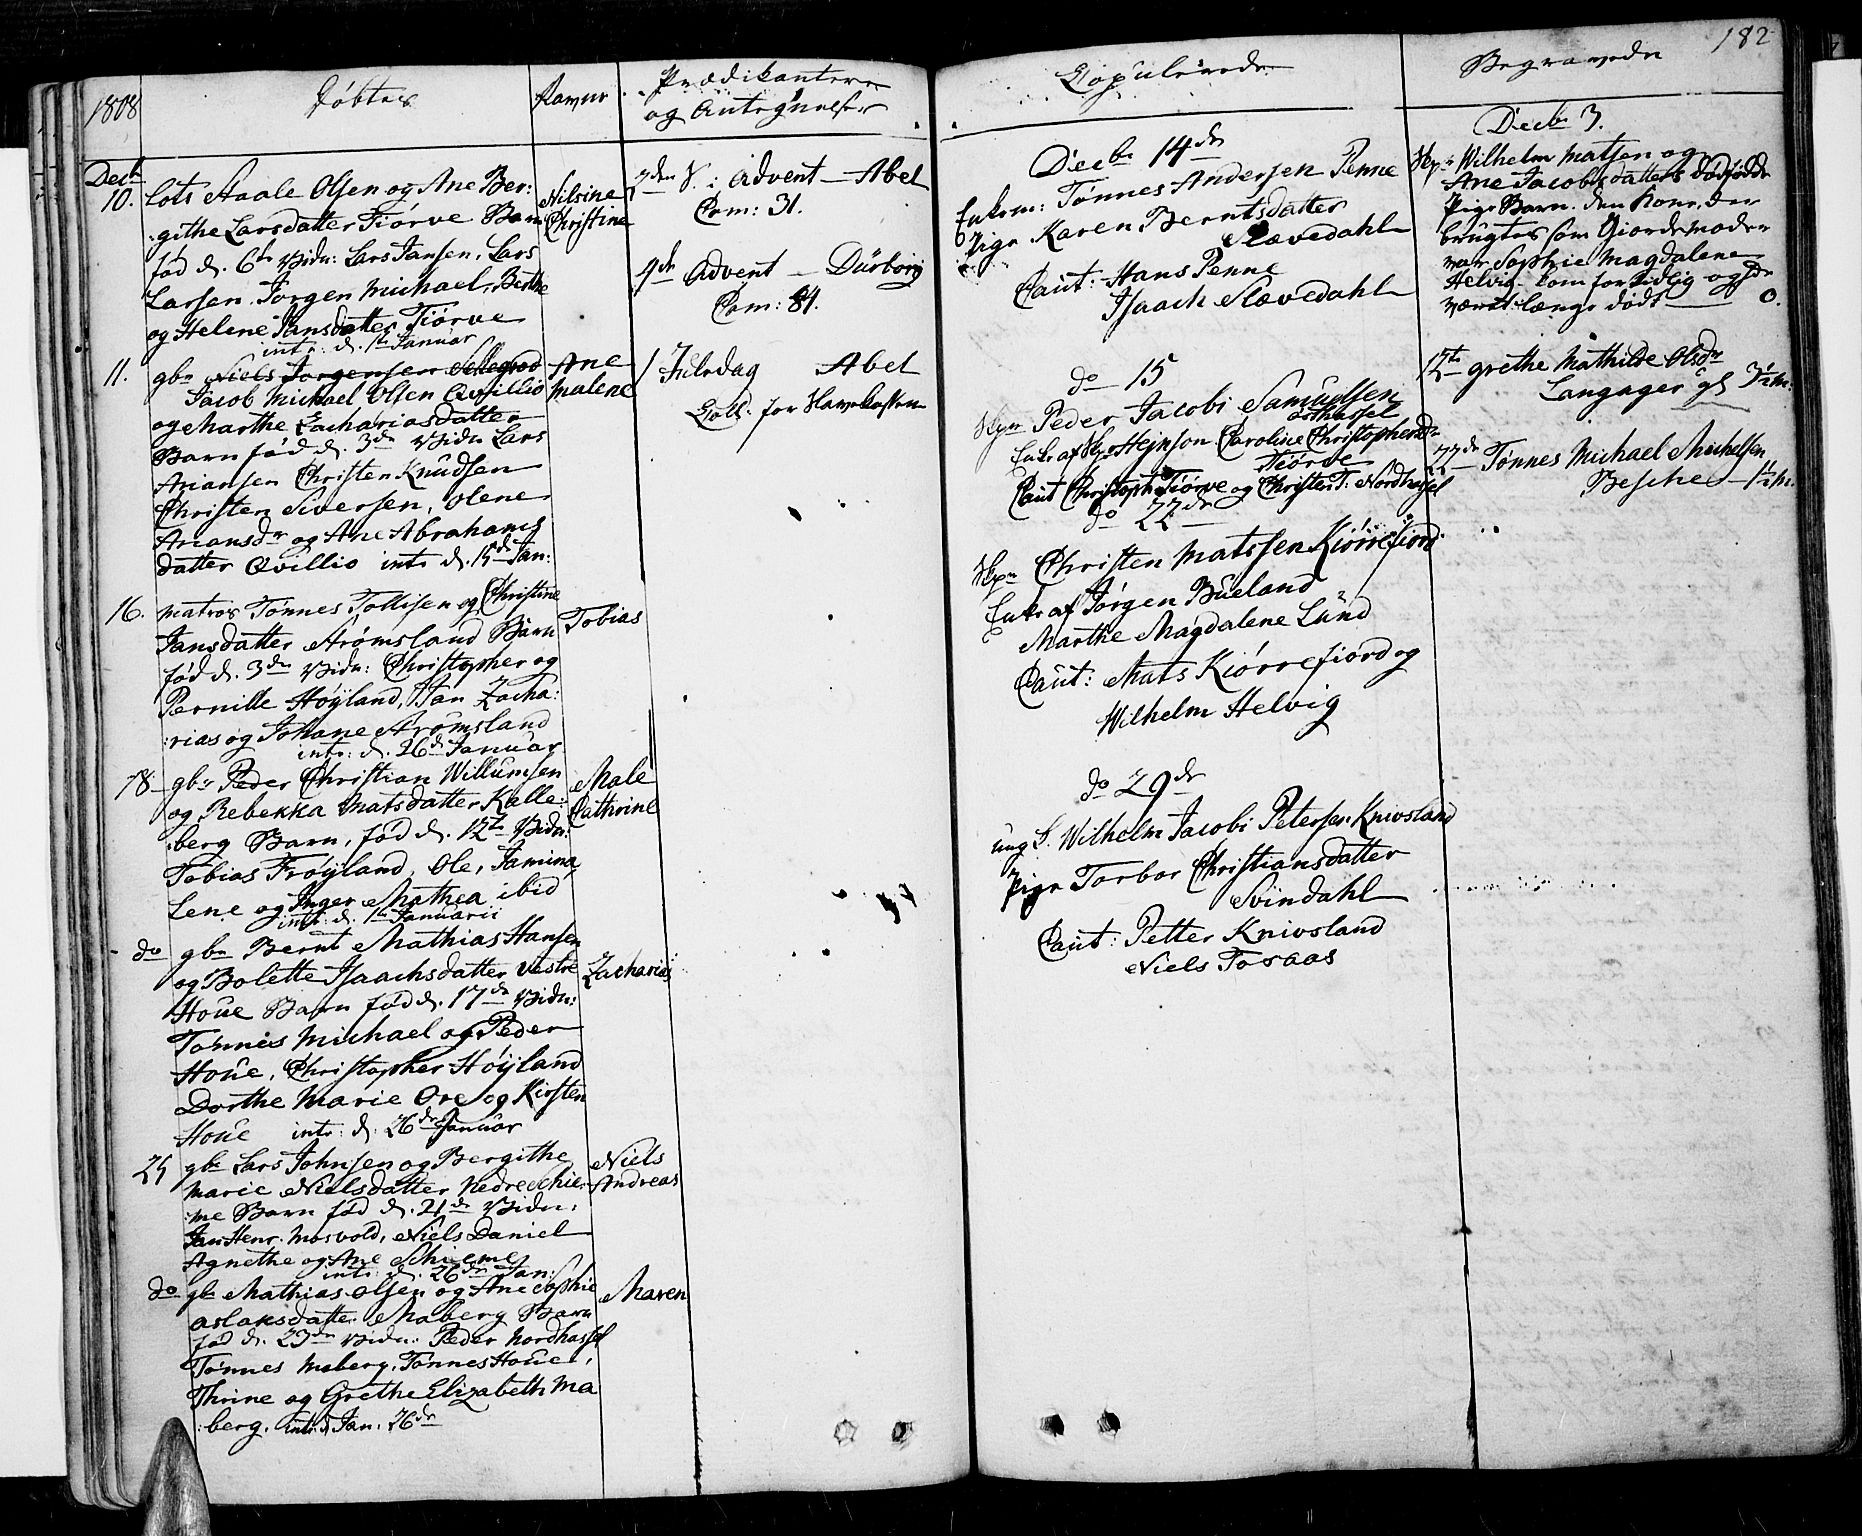 1808
Døbte
Navne
Prædikantere
og Antegnelser
Copulerede
Begravede
182
Decb
10.
Lots Staale Olsen og Ane Ber:
githe Larsdatter Tiørve Barn
fød d. 6te Vidn: Lars Jansen, Lars
Larsen, Jørgen Michael, Berthe
og Helene Jansdatter Tiørve
intr: d. 1te Januar
Nilsine
Christine
11.
gbr Niels Jørgensen
Jacob Michael Olsen Qvillio
og Marthe Zachariasdatter
Barn fød d. 3de Vidn Lars
Ariansen Christen Knudsen
Christen Siversen, Olene
Ariansdr og Ane Abrahams
datter Qvillio intr d. 15de Jan:
Ane
Malene
16.
matros Tønnes Tollisen og Christine
Jansdatter Strømsland Barn
fød d. 3de Vidn: Christopher og
Pernille Høyland, Jan Zacha:
:rias og Johane Strømsland
intr: d. 26de Januar
Tobias
18
gbr Peder Christian Willumsen
og Rebekka Matsdatter Kalle:
:berg Barn, fød d. 12te Vidn:
Tobias Frøyland, Ole, Jamina,
Lene og Inger Mathea ibid
intr: d. 1te Januarii
Male
Cathrine
do
gbr Bernt Mathias Hansen
og Bolette Isaachsdatter Vestre
Houe Barn fød d. 17de Vidn:
Tønnes Michael og Peder
Houe, Christopher Høyland
Dorthe Marie Ore og Kirsten
Houe intr: d. 26de Januar
Zacharias
25
gbr Lars Johnsen og Bergithe
Marie Nielsdatter Nedre Schie:
:me Barn fød d. 21de Vidn:
Jan Henr. Mosvold, Niels Daniel
Agnethe og Ane Schieme
intr: d. 26de Jan:
Niels
Andreas
do
gbr Mathias Olsen og Ane Sophie
Aslaksdatter Maberg Barn
fød d. 23de Vidn: Peder Nordhassel
Tønnes Maberg, Tønnes Houe,
Thrine og Grethe Elizabeth Ma
:berg. intr: d. Jan: 26de
Maren
2den S. i Advent — Abel
Com: 31.
4de Advent — Dürborg
Com: 84.
1 Juledag Abel
Coll: for
Decbr 14de
Enkem: Tønnes Andersen Penne
Pige Karen Berntsdatter
Slævedahl
Caut: Hans Penne
Isaach Slævedahl
do 15
Peder Jacobi Samuelsen
Nordhassel
Enke af Heinson Caroline Christophersdr
Tiørve
Caut Christoph Tiørve og Christen T: Nordhassel
do 22de
Christen Matssen Kiørrefiord
Enke af Jørgen Büeland
Marthe Magdalene Lünd
Caut: Mats Kiørrefiord og
Wilhelm Helvig
do 29de
ung K. Wilhelm Jacobi Petersen Knivsland
Pige Torbor Christiansdatter
Svindahl
Caut: Petter Knivsland
Niels Tosaas
Decbr 3.
Wilhelm Matsen og
Ane Jacobsdatters dødfødde
Pige Barn. den Kone, der
brugtes som Giordemoder
var Sophie Magdalene
Helvig. kom for sildig
været længe dødt — 0.
12te Grethe Mathilde Olsdr
Langager gl 3½ M:
22de Tønnes Michael Michelsen
Besche — 1½ M.